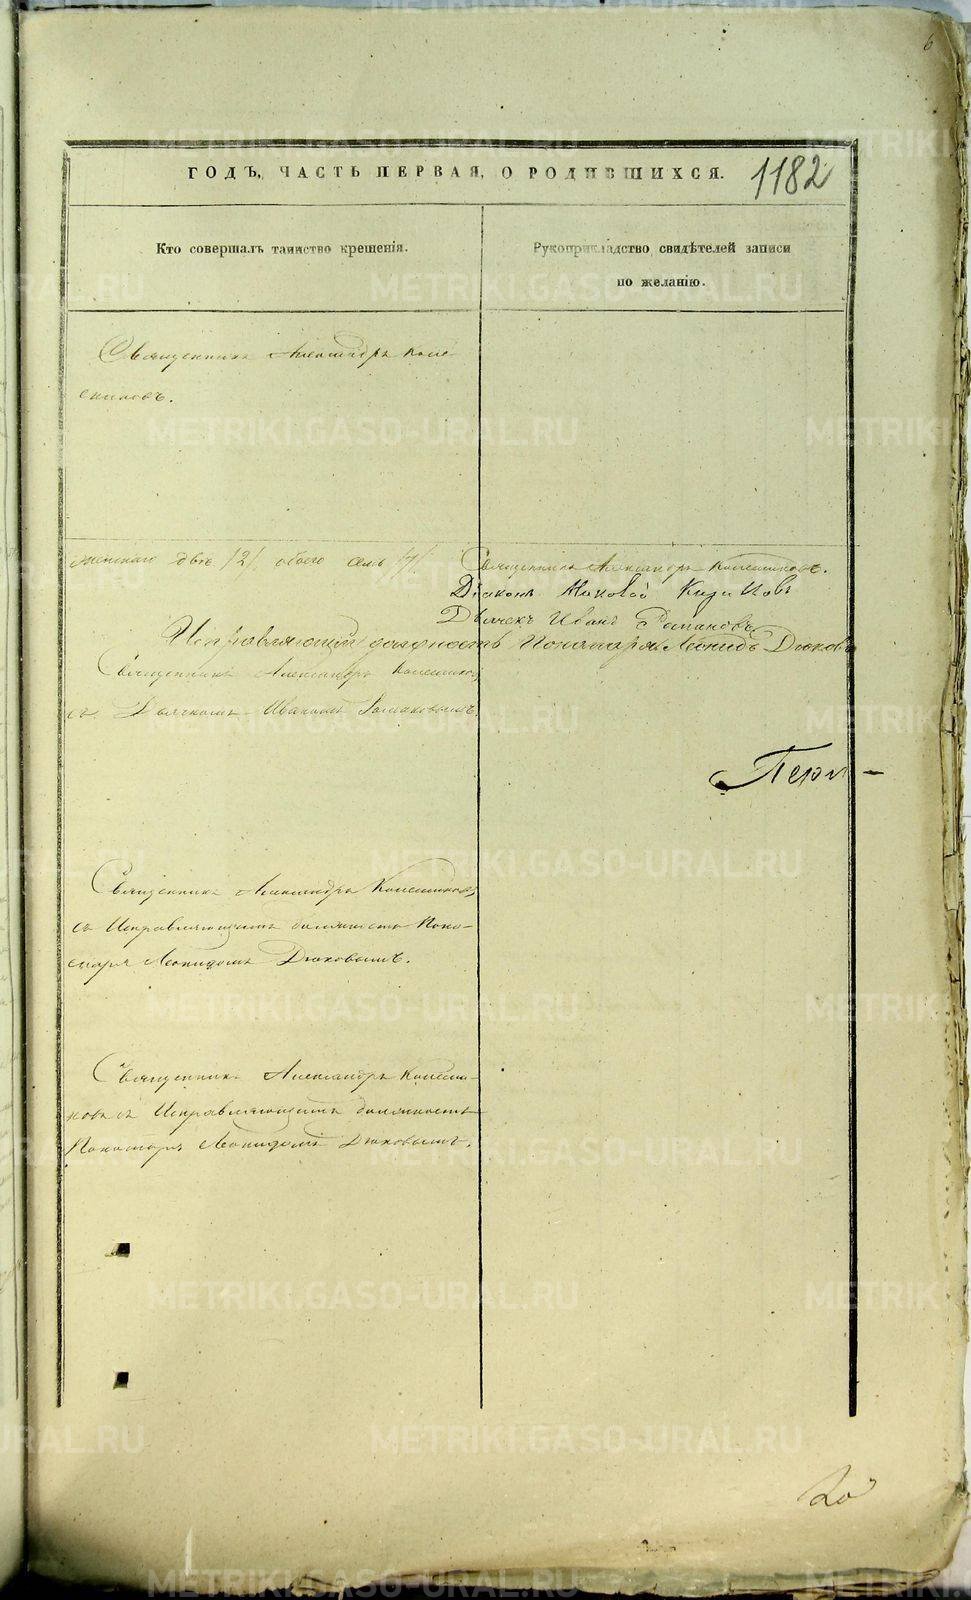 6
ГОДЪ, ЧАСТЬ ПЕРВАЯ, О РОДИВШИХСЯ.
1182
Кто совершалъ таинство крещенія.
Рукоприкладство свидѣтелей записи
по желанію.
Священникъ Александръ Коле-
сниковъ.
женскаго двѣ /2/. обоего семь /7/. Священникъ Александръ Колесниковъ.
Діаконъ
Дьячекъ Иванъ Романовъ
Исправляющій должность Пономаря Леонидъ Дюковъ
Священникъ Александръ Колесниковъ
съ Дьячкомъ Иваномъ Романовымъ.
Перм-
Священникъ Александръ Колесниковъ
съ Исправляющимъ должность Поно-
маря Леонидомъ Дюковымъ.
Священникъ Александръ Колесни-
ковъ съ Исправляющимъ должность
Пономаря Леонидомъ Дюковымъ.
METRIKI.GASO-URAL.RU